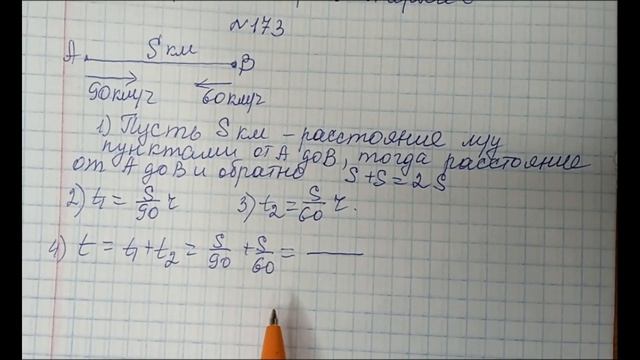 №173
A S км B
90км/ч 60км/ч
1) Пусть S км - расстояние м/у
пунктами от А до В, тогда расстояние
от А до В и обратно S+S=2S
2) t₁ = S/90 ч 3) t₂ = S/60 ч.
4) t = t₁ + t₂ = S/90 + S/60 = —